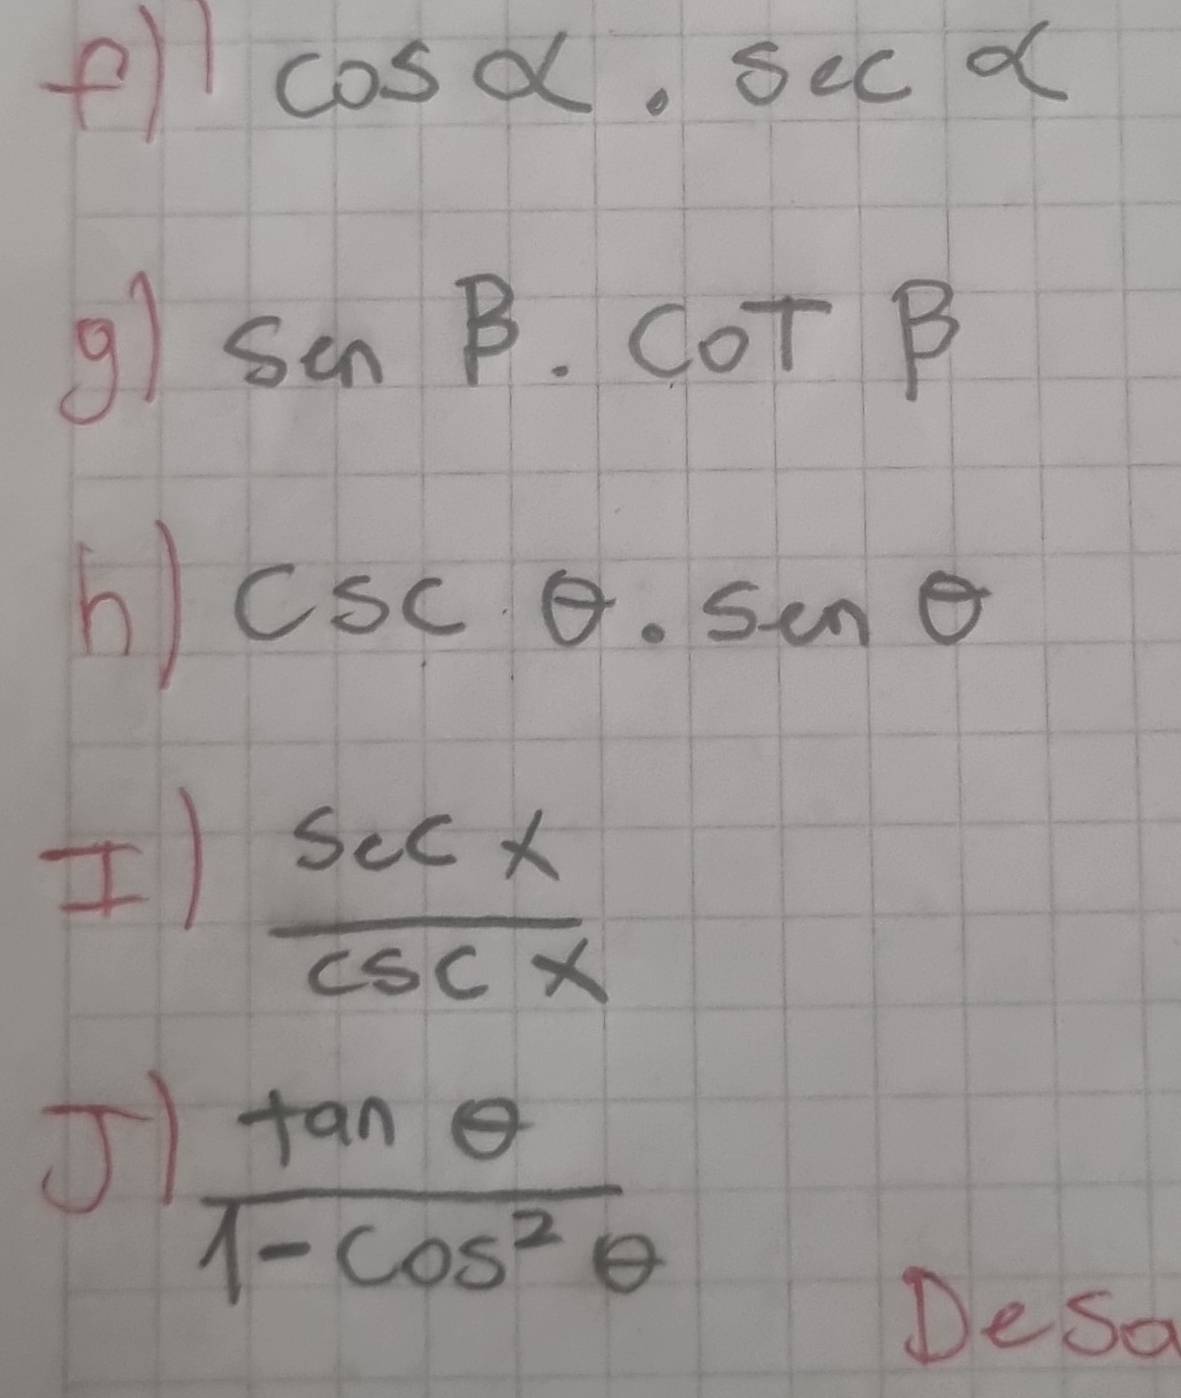 f) cos α . sec α
g) sen β . COT β
h) csc θ . sen θ
I) sec x
csc x
J) tan θ
1 - cos² θ
Desa